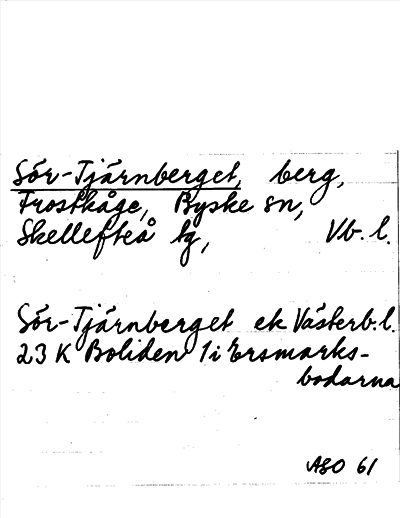 Sör-Tjärnberget, berg,
Frostkåge, Byske sn,
Skellefteå tg, Vb. l.
Sör-Tjärnberget ek Västerb. l.
23 K Boliden 1 i Ersmarks-
bodarna
ASO 61